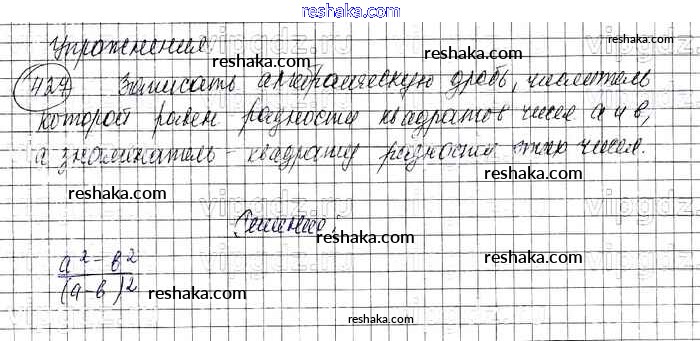 reshaka.com
Упражнения
427 Записать алгебраическую дробь, числитель
которой равен разности квадратов чисел а и в,
а знаменатель - квадрату разности этих чисел.
reshaka.com reshaka.com reshaka.com
Решение:
a² - b²
(a-b)²
reshaka.com reshaka.com
reshaka.com